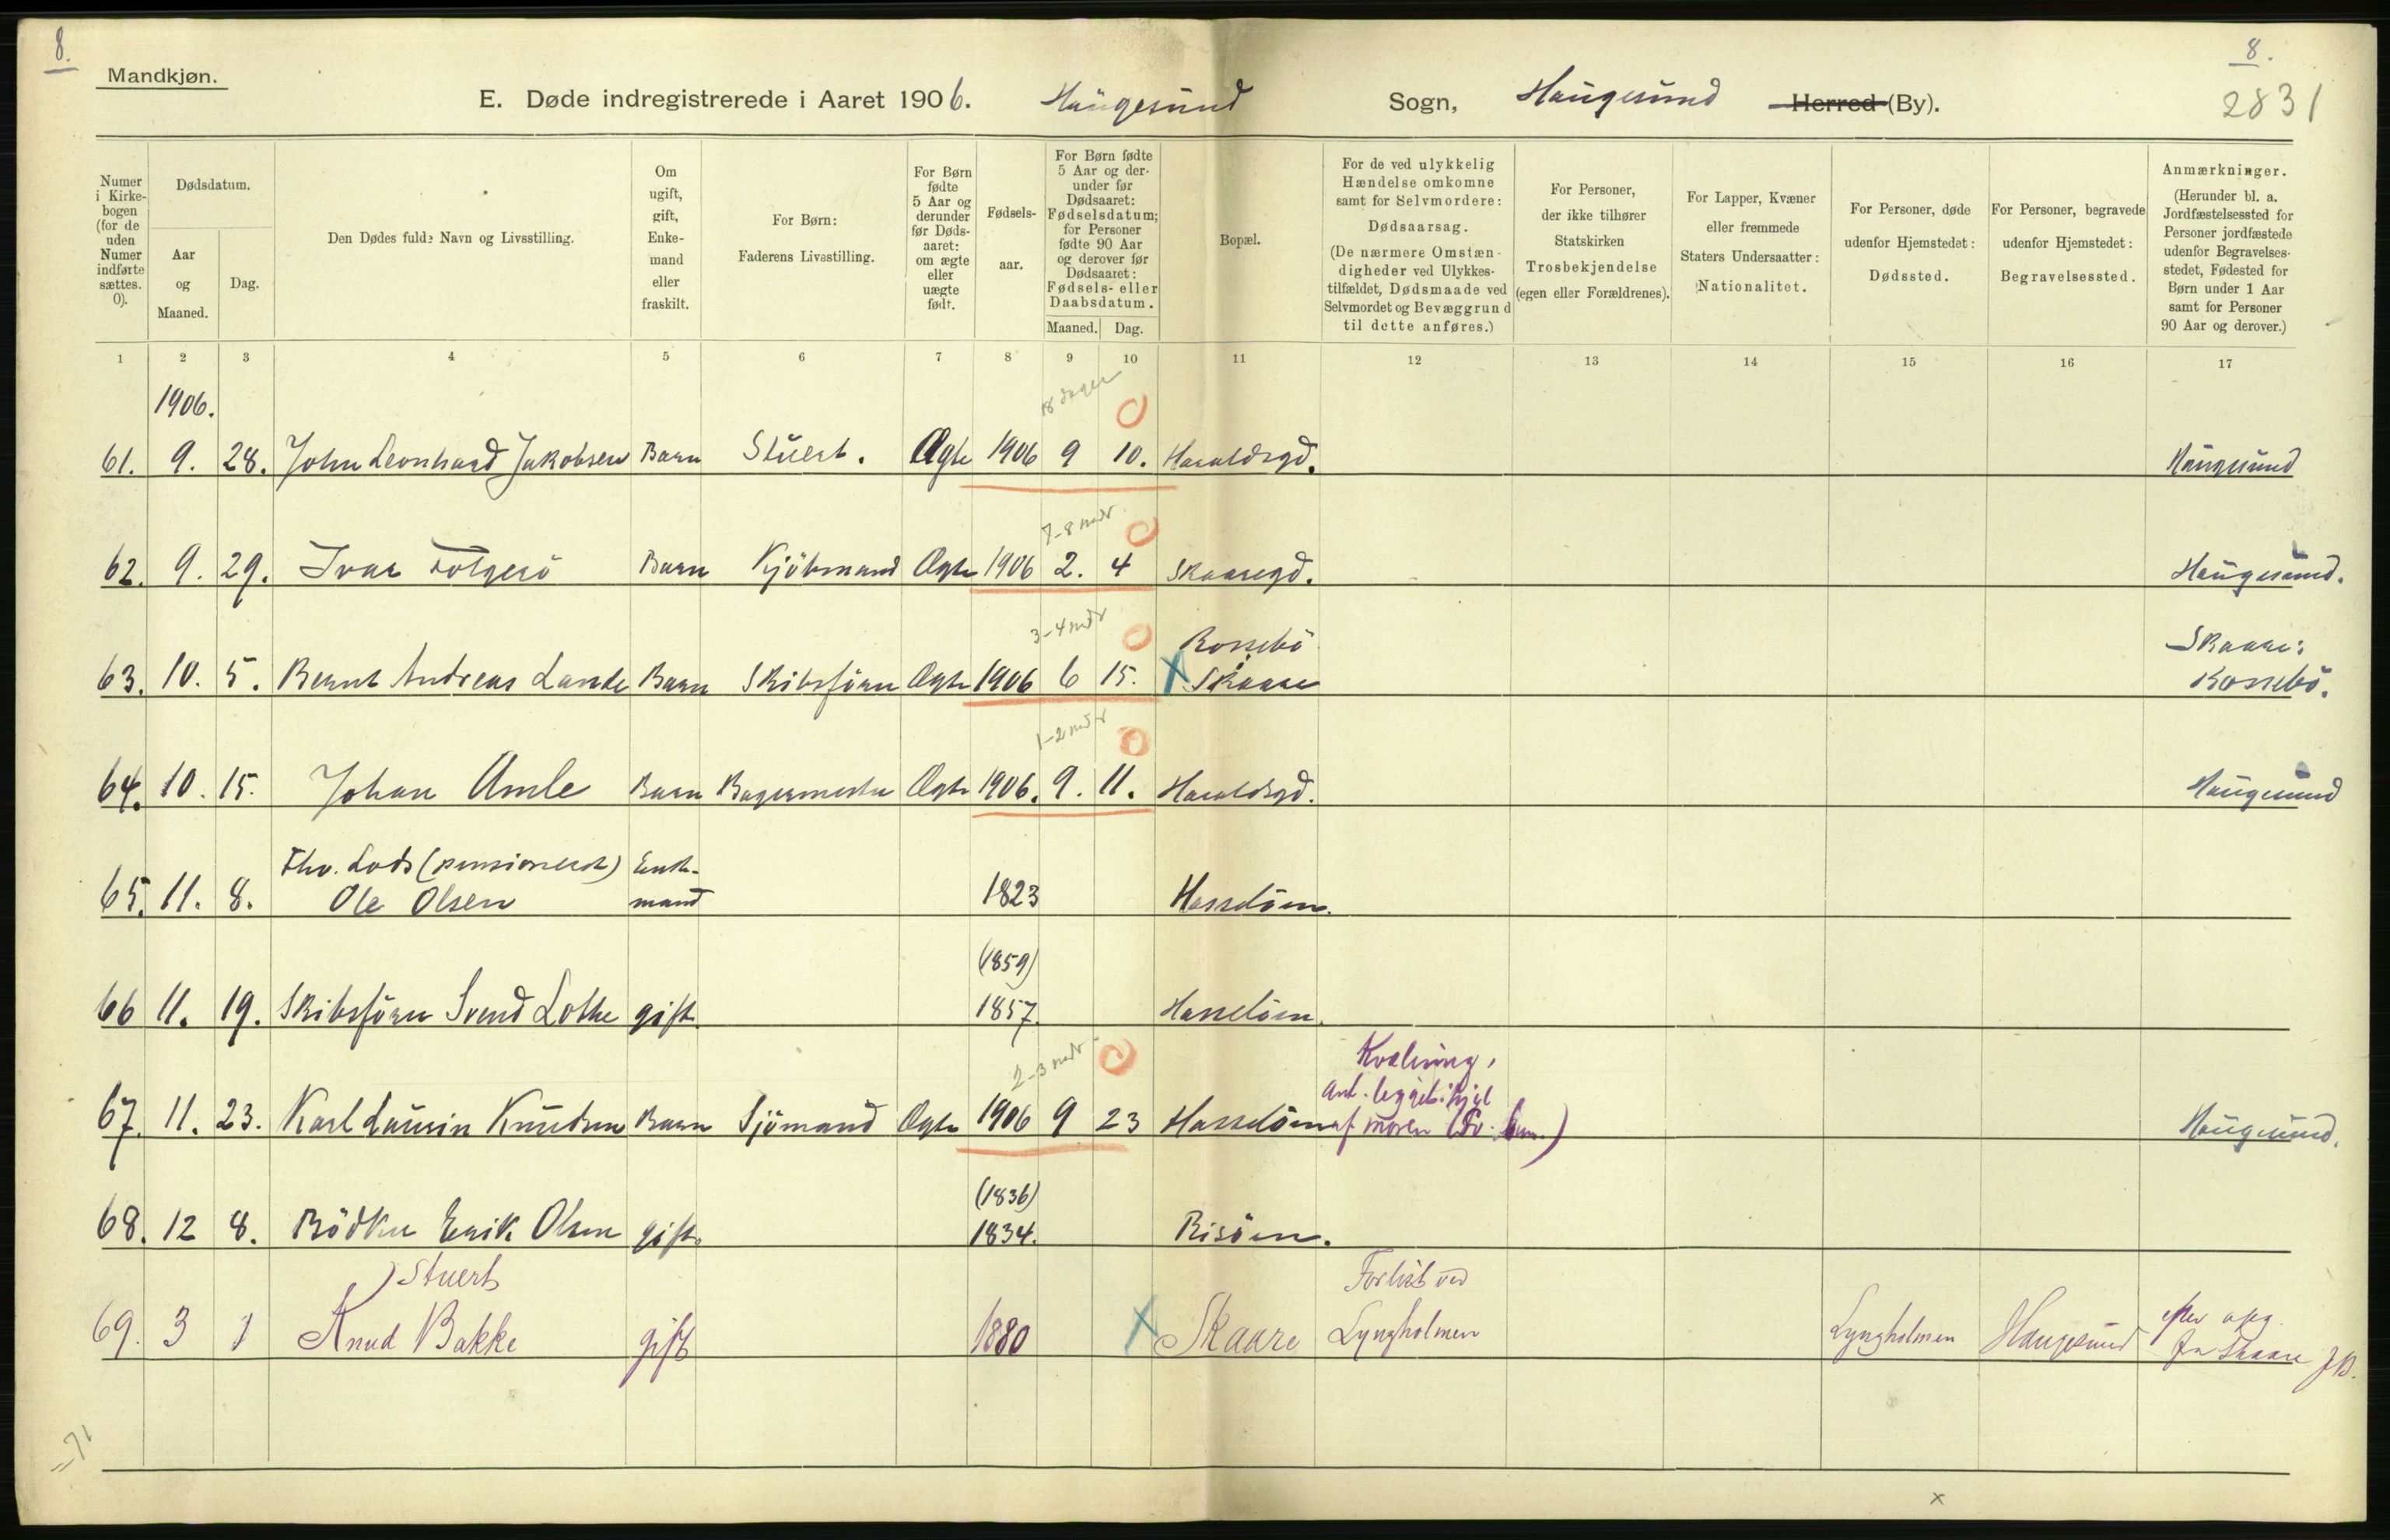 8.
8.
2831
Mandkjøn.
E. Døde indregistrerede i Aaret 1906. Haugesund Sogn, Haugesund Herred (By).
Numer i Kirkebogen (for de uden Numer indførte sættes. 0).
Dødsdatum.
Aar og Maaned.
Dag.
Den Dødes fulde Navn og Livsstilling.
Om ugift, gift, Enkemand eller fraskilt.
For Børn: Faderens Livsstilling.
For Børn fødte 5 Aar og derunder før Dødsaaret: om ægte eller uægte født.
Fødselsaar.
For Børn fødte 5 Aar og derunder før Dødsaaret: Fødselsdatum; for Personer fødte 90 Aar og derover før Dødsaaret: Fødsels- eller Daabsdatum.
Maaned. Dag.
Bopæl.
For de ved ulykkelig Hændelse omkomne samt for Selvmordere: Dødsaarsag. (De nærmere Omstændigheder ved Ulykkestilfældet, Dødsmaade ved Selvmordet og Bevæggrund til dette anføres.)
For Personer, der ikke tilhører Statskirken Trosbekjendelse (egen eller Forældrenes).
For Lapper, Kvæner eller fremmede Staters Undersaatter: Nationalitet.
For Personer, døde udenfor Hjemstedet: Dødssted.
For Personer, begravede udenfor Hjemstedet: Begravelsessted.
Anmærkninger. (Herunder bl. a. Jordfæstelsessted for Personer jordfæstede udenfor Begravelsesstedet, Fødested for Børn under 1 Aar samt for Personer 90 Aar og derover.)
1 2 3 4 5 6 7 8 9 10 11 12 13 14 15 16 17
1906.
18 dager
61. 9. 28. John Leonhard Jakobsen Barn Stuert. Ægte 1906 9 10. Haraldsgd. Haugesund
7-8 mdr
62. 9. 29. Ivar Følgerö Barn Kjöbmand Ægte 1906 2. 4 Skaaregd. Haugesund.
3-4 mdr
Rossebö Skaare:
63. 10. 5. Bernt Andreas Lande Barn Skibsförer Ægte 1906 6 15. X Skaare Rossebö.
1-2 mdr
64. 10. 15. Johan Amle Barn Bagermester Ægte 1906. 9. 11. Haraldsgd. Haugesund
Fhv. Lods (pensioneret) Enke-
65. 11. 8. Ole Olsen mand 1823 Hasselöen.
(1859)
66 11. 19. Skibsförer Svend Lothe gift 1857. Hasselöen.
2-3 mdr Kvælning,
ant. ihjel
67. 11. 23. Karl Laurin Knudsen Barn Sjömand Ægte 1906 9 23 Hasselöen af moren Haugesund.
(1836)
68. 12 8. Bödker Erik Olsen gift. 1834. Risöen.
Stuert Forlist ved
69. 3 1 Knud Bakke gift 1880 X Skaare Lyngholmen Lyngholmen Haugesund efter opg.
fra Skaare JB.
=71
x